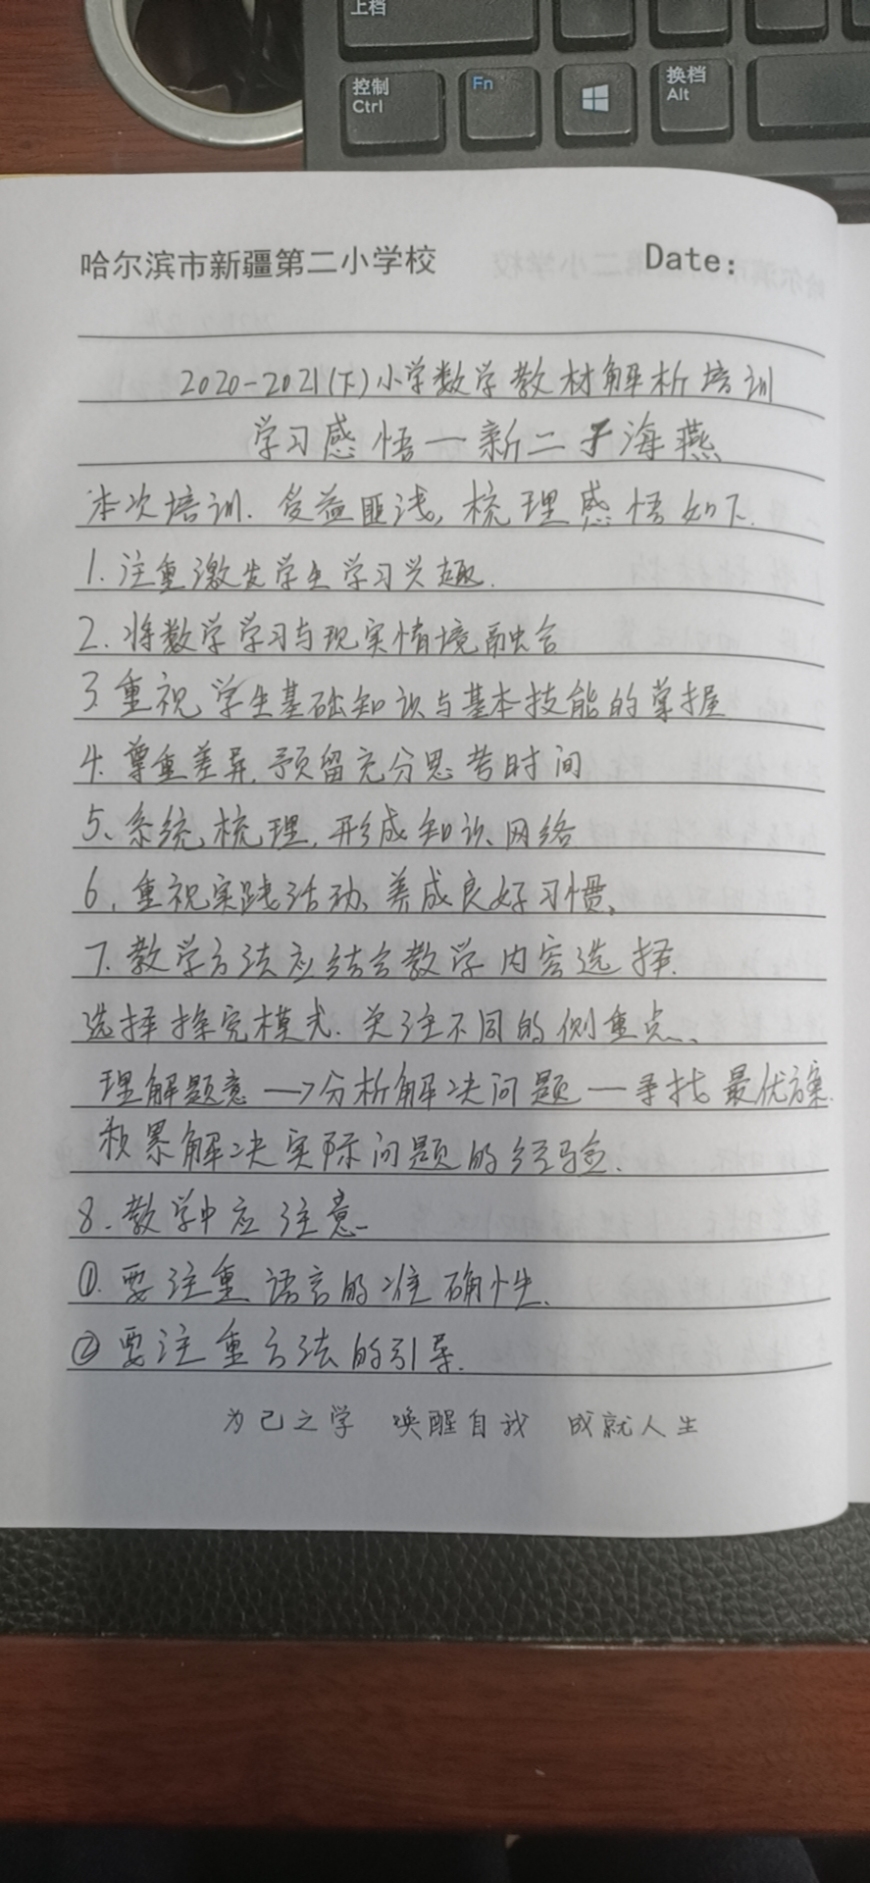 上档
控制
Ctrl
Fn
换档
Alt
哈尔滨市新疆第二小学校 Date:
2020-2021(下)小学数学教材解析培训
学习感悟一新二于海燕
本次培训.受益匪浅,梳理感悟如下.
1.注重激发学生学习兴趣.
2.将数学学习与现实情境融合
3.重视学生基础知识与基本技能的掌握
4.尊重差异,预留充分思考时间
5、系统梳理,形成知识网络
6.重视实践活动、养成良好习惯,
7.教学方法应结合教学内容选择.
选择探究模式.关注不同的侧重点、
理解题意→分析解决问题—寻找最优方案.
积累解决实际问题的经验.
8.教学中应注意
①.要注重语言的准确性.
②要注重方法的引导.
为己之学 唤醒自我 成就人生